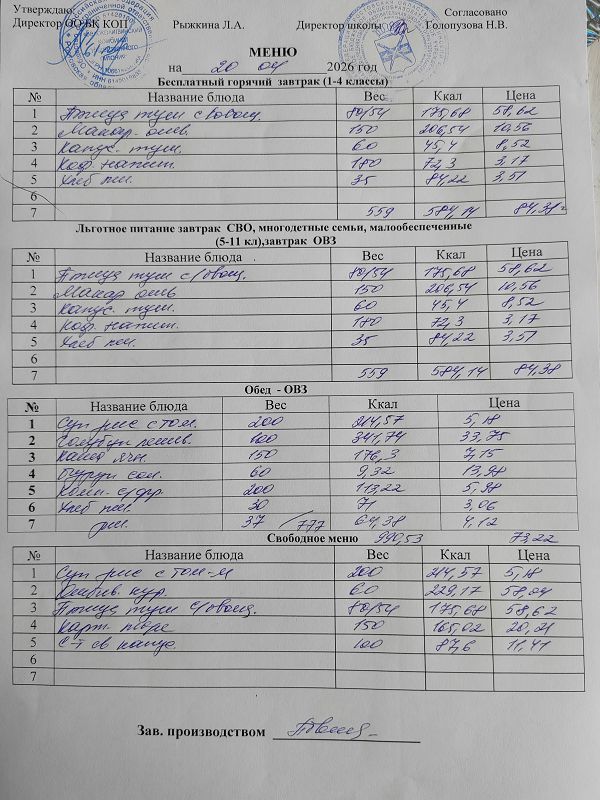 Утверждаю:
Согласовано
Директор ООО БК КОП Рыжкина Л.А. Директор школы Голопузова Н.В.
МЕНЮ
на 20 04 2026 год
Бесплатный горячий завтрак (1-4 классы)
№ Название блюда Вес Ккал Цена
1 Птица туш с овощ. 80/54 175,68 58,62
2 Макар. отв. 150 206,54 10,56
3 Капус. туш. 60 45,4 8,52
4 Коф. напит. 180 72,3 3,17
5 Хлеб пш. 35 84,22 3,51
6
7 559 584,14 84,38
Льготное питание завтрак СВО, многодетные семьи, малообеспеченные
(5-11 кл),завтрак ОВЗ
№ Название блюда Вес Ккал Цена
1 Птица туш с/овощ. 80/54 175,68 58,62
2 Макар отв 150 206,54 10,56
3 Капус. туш. 60 45,4 8,52
4 Коф. напит. 180 72,3 3,17
5 Хлеб пш. 35 84,22 3,51
6
7 559 584,14 84,38
Обед - ОВЗ
№ Название блюда Вес Ккал Цена
1 Суп рис с том. 200 214,57 5,18
2 Голубцы ленив. 100 341,74 33,75
3 Каша ячн. 150 176,3 7,15
4 Огурец сол. 60 9,32 13,98
5 Комп. с/фр. 200 113,22 5,98
6 Хлеб пш. 30 71 3,06
7 рж. 37 / 777 64,38 4,12
Свободное меню 990,53 73,22
№ Название блюда Вес Ккал Цена
1 Суп рис с том-м 200 214,57 5,18
2 кур. 60 229,17 58,04
3 Птица туш с/овощ. 80/54 175,68 58,62
4 Карт. пюре 150 165,02 20,21
5 С-т св капус. 100 87,6 11,41
6
7
Зав. производством